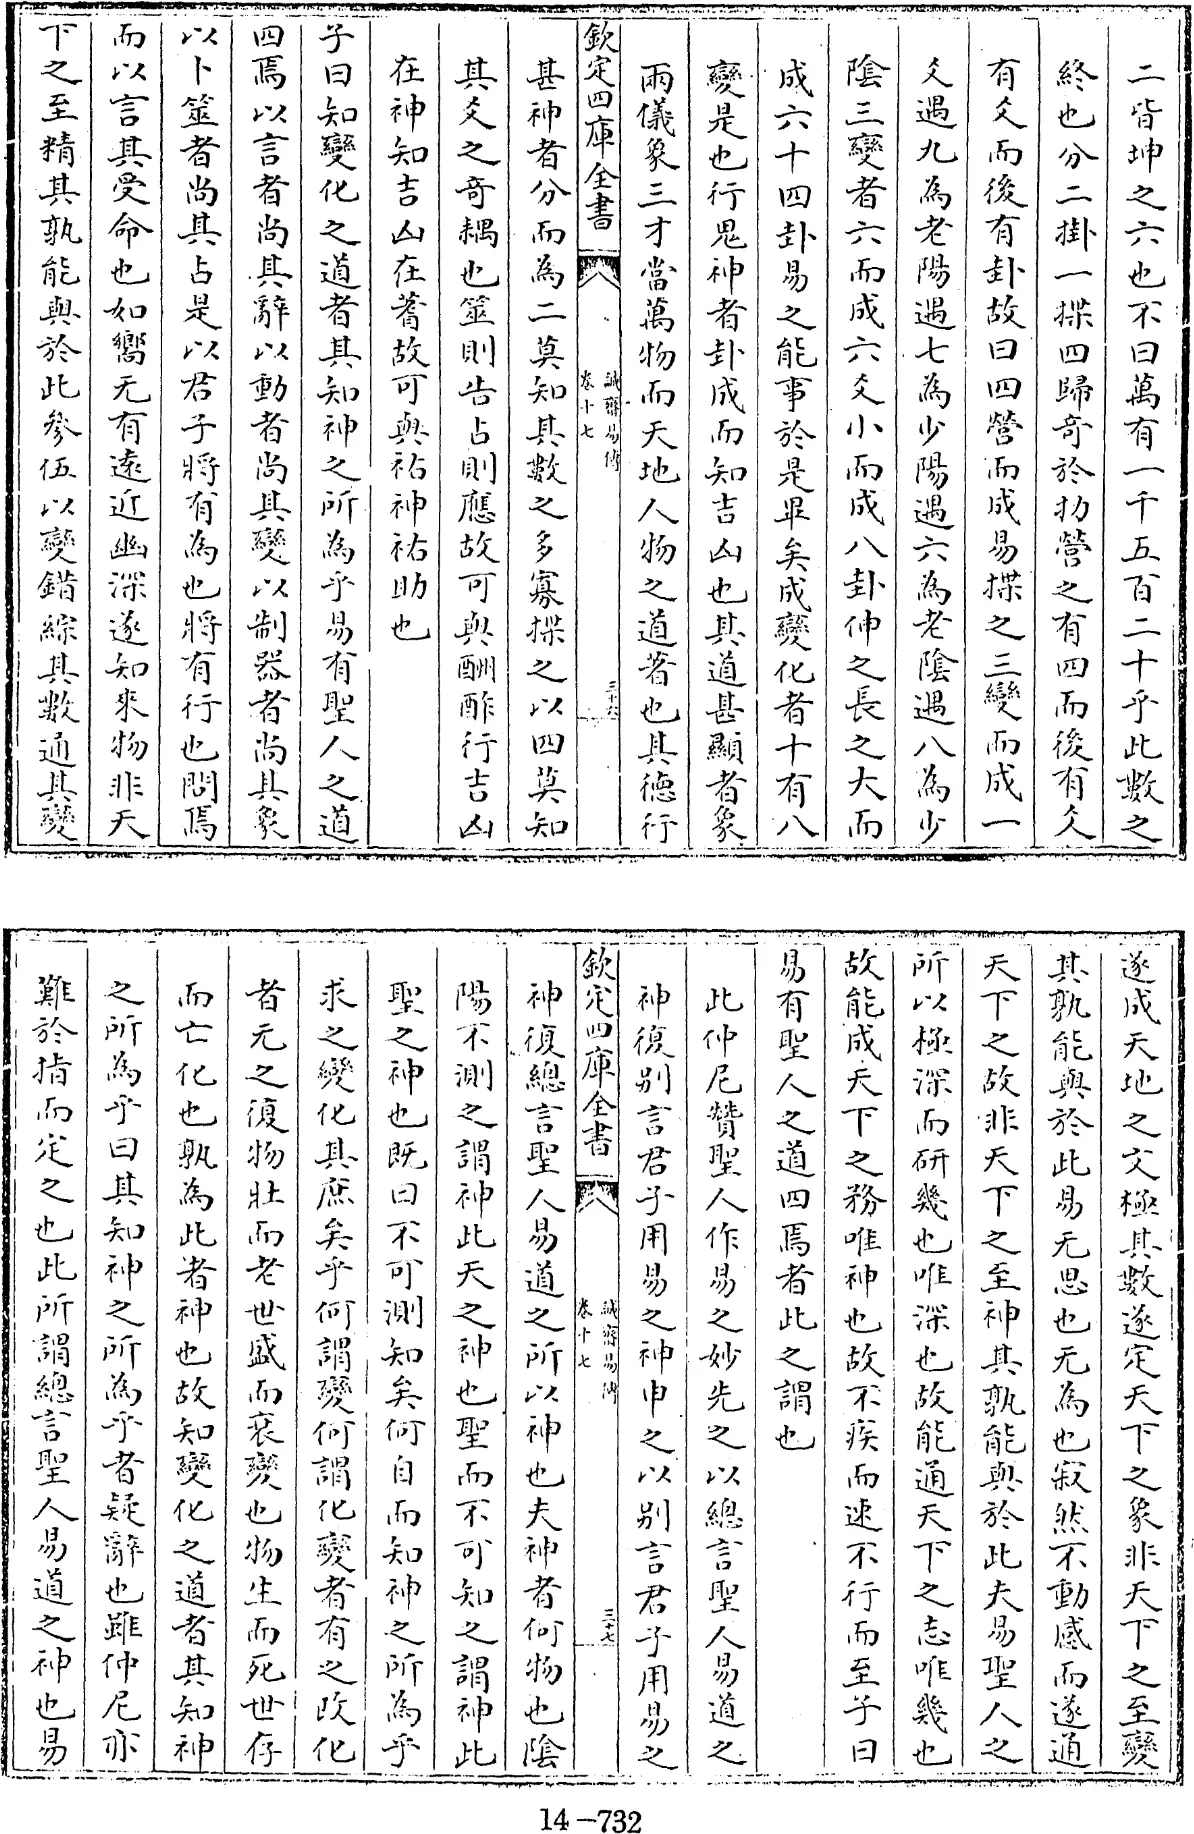 二皆坤之六也不曰萬有一千五百二十乎此數之
終也分二掛一揲四歸奇於扐營之有四而後有爻
有爻而後有卦故曰四營而成易揲之三變而成一
爻遇九為老陽遇七為少陽遇六為老陰遇八為少
陰三變者六而成六爻小而成八卦伸之長之大而
成六十四卦易之能事於是畢矣成變化者十有八
變是也行鬼神者卦成而知吉凶也其道甚顯者象
兩儀象三才當萬物而天地人物之道著也其德行
欽定四庫全書
誠齋易傳
卷十七
三十六
甚神者分而為二莫知其數之多寡揲之以四莫知
其爻之奇耦也筮則告占則應故可與酬酢行吉凶
在神知吉凶在蓍故可與祐神祐助也
子曰知變化之道者其知神之所為乎易有聖人之道
四焉以言者尚其辭以動者尚其變以制器者尚其象
以卜筮者尚其占是以君子將有為也將有行也問焉
而以言其受命也如嚮无有遠近幽深遂知來物非天
下之至精其孰能與於此參伍以變錯綜其數通其變
遂成天地之文極其數遂定天下之象非天下之至變
其孰能與於此易无思也无為也寂然不動感而遂通
天下之故非天下之至神其孰能與於此夫易聖人之
所以極深而研幾也唯深也故能通天下之志唯幾也
故能成天下之務唯神也故不疾而速不行而至子曰
易有聖人之道四焉者此之謂也
此仲尼贊聖人作易之妙先之以總言聖人易道之
神復別言君子用易之神申之以別言君子用易之
欽定四庫全書
誠齋易傳
卷十七
三十七
神復總言聖人易道之所以神也夫神者何物也陰
陽不測之謂神此天之神也聖而不可知之謂神此
聖之神也既曰不可測知矣何自而知神之所為乎
求之變化其庶矣乎何謂變何謂化變者有之改化
者无之復物壯而老世盛而衰變也物生而死世存
而亡化也孰為此者神也故知變化之道者其知神
之所為乎曰其知神之所為乎者疑辭也雖仲尼亦
難於指而定之也此所謂總言聖人易道之神也易
14-732